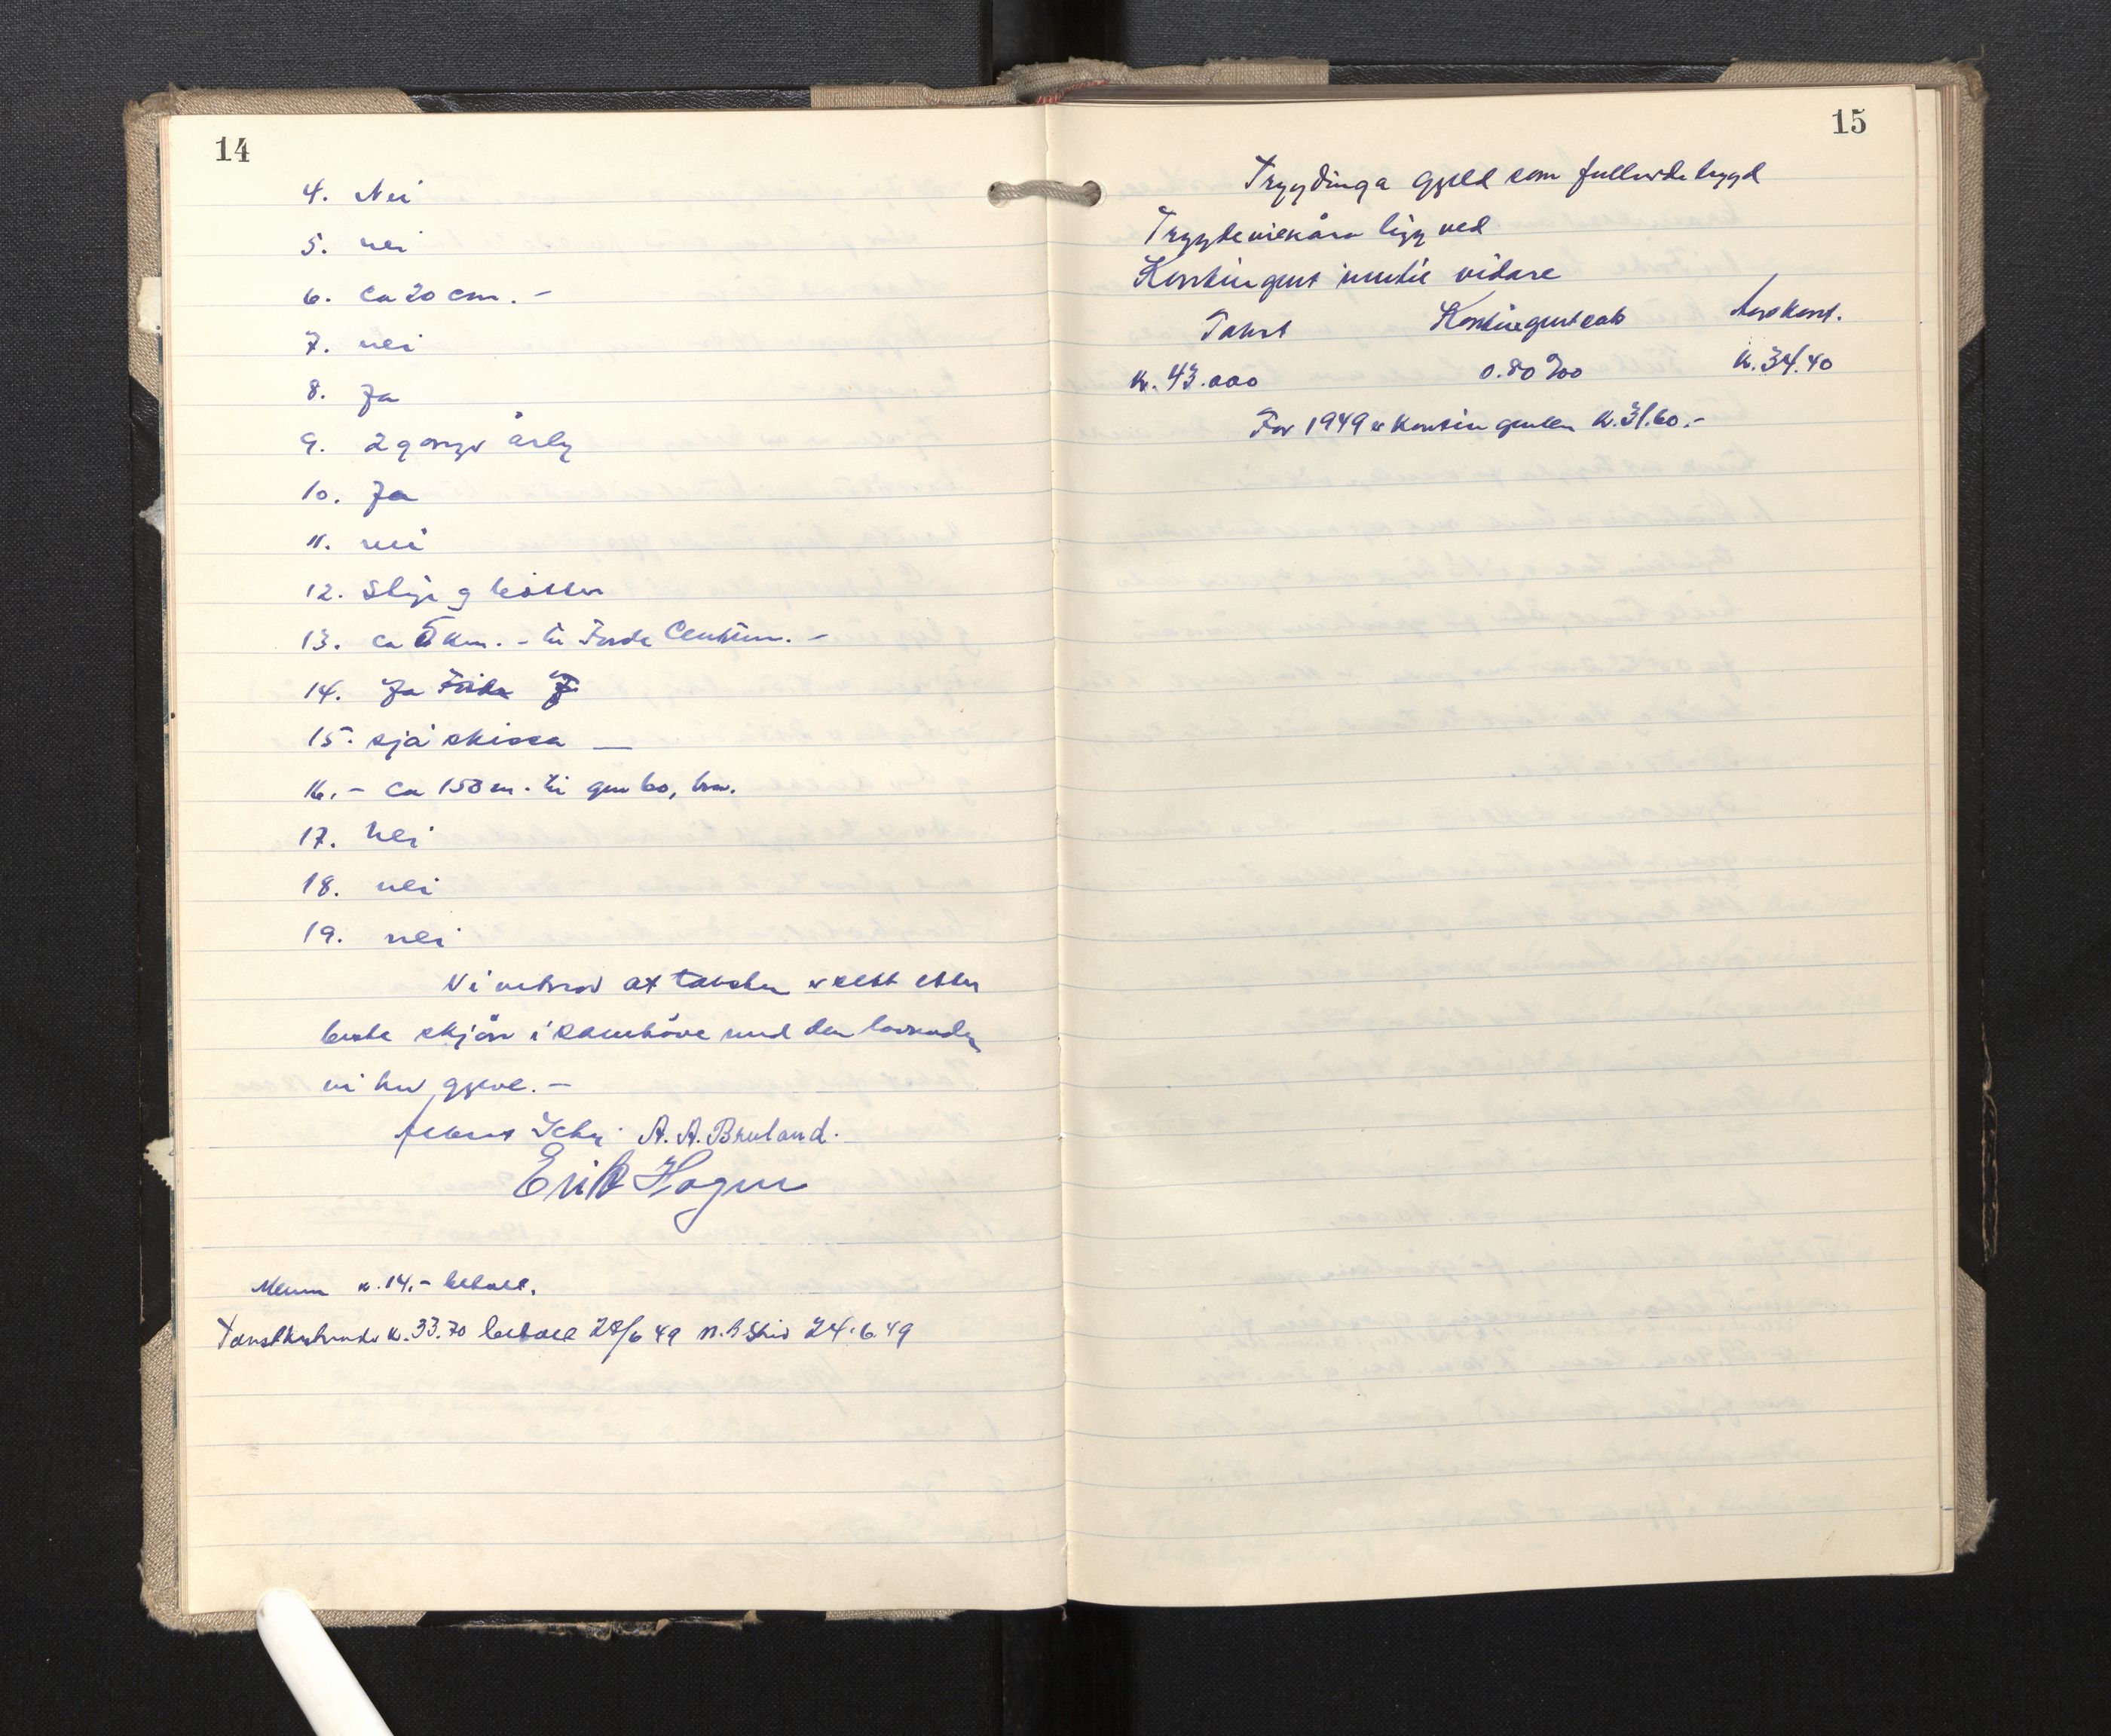 14
4. Nei
5. nei
6. ca 20 cm. -
7. nei
8. Ja
9. 2 gongr årleg
10. Ja
11. nei
12. Stige og bøtter
13. ca 5 km. - til Førde Centrum. -
14. Ja Førde
15. sjå skissa —
16. - ca 150 m. til grn bo, bra.
17. Nei
18. nei
19. nei
Vi vitnar at taksten er sett etter
beste skjøn i samhøve med den lovnaden
vi har gjeve. -
A. A. Bruland.
Erik Hagen
Merker k. 14,- betalt.
Takstkostnad k. 33.70 betalt 28/6 49 N. B. 24.6.49
15
Trygdinga gjeld som fullverdetrygd
Trygdevilkåra ligg ved
Kontingent inntil vidare
Takst Kontingentsats Årskont.
k. 43.000 0.80 ‰ k. 34.40
For 1949 er kontingenten k. 31.60.-